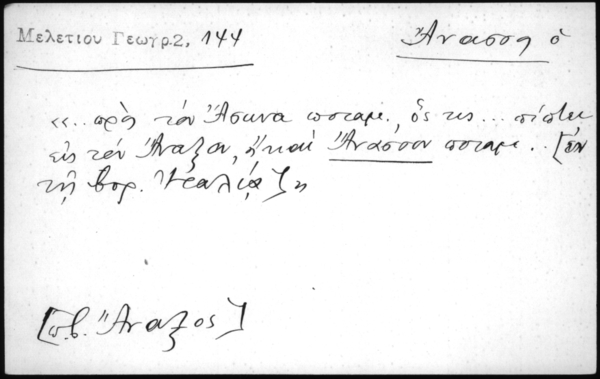 Μελετίου Γεωγρ.2, 144
Ἄνασσος ὁ
«.. πρὸς τὸν Ἄσωνα ποταμ., ὅς τις... πίπτει
εἰς τὸν Ἄναξον, ἢ καὶ Ἄνασσον ποταμ.. [ἐν
τῇ βορ. Ἰταλίᾳ]»
[πβ. Ἄναξος]